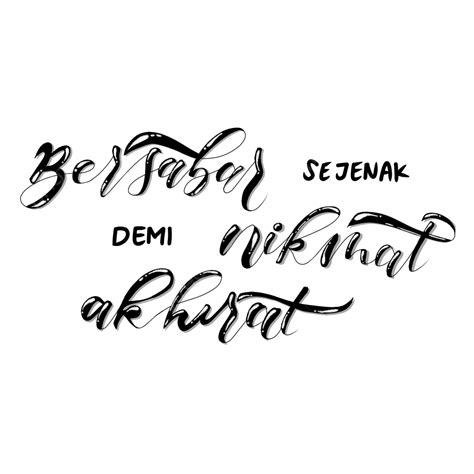 Bersabar SEJENAK
DEMI nikmat
akhirat